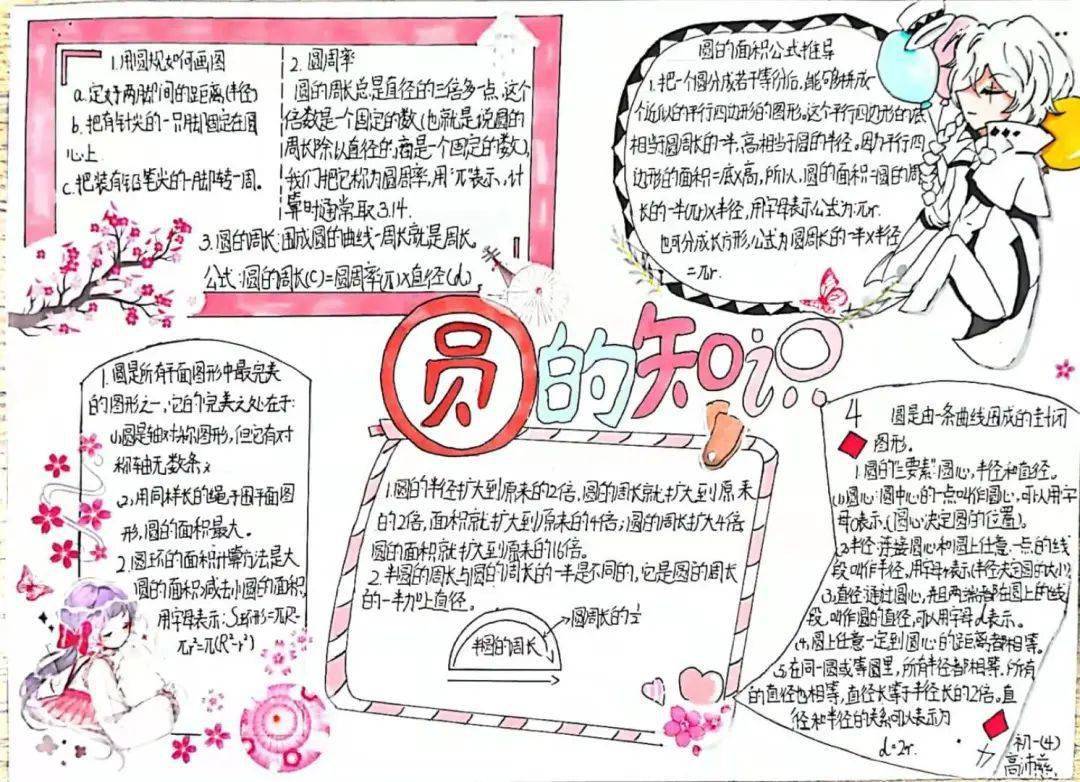 1.用圆规如何画圆
a.定好两脚间的距离(半径)
b.把有针尖的一只脚固定在圆
心上
c.把装有铅笔尖的一脚转一周。
2.圆周率
圆的周长总是直径的三倍多一点,这个
倍数是一个固定的数(也就是说圆的
周长除以直径的,商是一个固定的数),
我们把它称为圆周率,用"π"表示,计
算时通常取3.14.
3.圆的周长:围成圆的曲线-周长就是周长。
公式:圆的周长(C)=圆周率(π)×直径(d)
圆的面积公式推导
1.把一个圆分成若干等份后,能够拼成
个近似的平行四边形的图形。这个平行四边形的底
相当于圆周长的一半,高相当于圆的半径,因为平行四
边形的面积=底×高,所以,圆的面积=圆的周
长的一半(πr)×半径,用字母表示公式为:πr.
也可分成长方形,公式为圆周长的一半×半径
=πr.
圆的知识
1.圆是所有平面图形中最完美
的图形之一,它的完美之处在于:
(1)圆是轴对称图形,但它有对
称轴无数条;
(2)用同样长的绳子围平面图
形,圆的面积最大。
2.圆环的面积计算方法是大
圆的面积减去小圆的面积,
用字母表示:S环形=πR²-
πr²=π(R²-r²)
1.圆的半径扩大到原来的2倍,圆的周长就扩大到原来
的2倍,面积就扩大到原来的4倍;圆的周长扩大4倍
圆的面积就扩大到原来的16倍。
2.半圆的周长与圆的周长的一半是不同的,它是圆的周长
的一半加上直径。
圆周长的½
半圆的周长
4 圆是由一条曲线围成的封闭
图形。
1.圆的"三要素":圆心,半径和直径。
(1)圆心:圆中心的一点叫作圆心,可以用字
母o表示.(圆心决定圆的位置)。
(2)半径:连接圆心和圆上任意一点的线
段叫作半径,用字母r表示(半径决定圆的大小)
(3)直径:通过圆心,并且两端都在圆上的线
段,叫作圆的直径,可以用字母d表示。
(4)圆上任意一定到圆心的距离都相等。
(5)在同一圆或等圆里,所有半径都相等,所有
的直径也相等,直径长等于半径长的2倍。直
径和半径的关系可以表示为
d=2r.
初一(4)
高沛兹